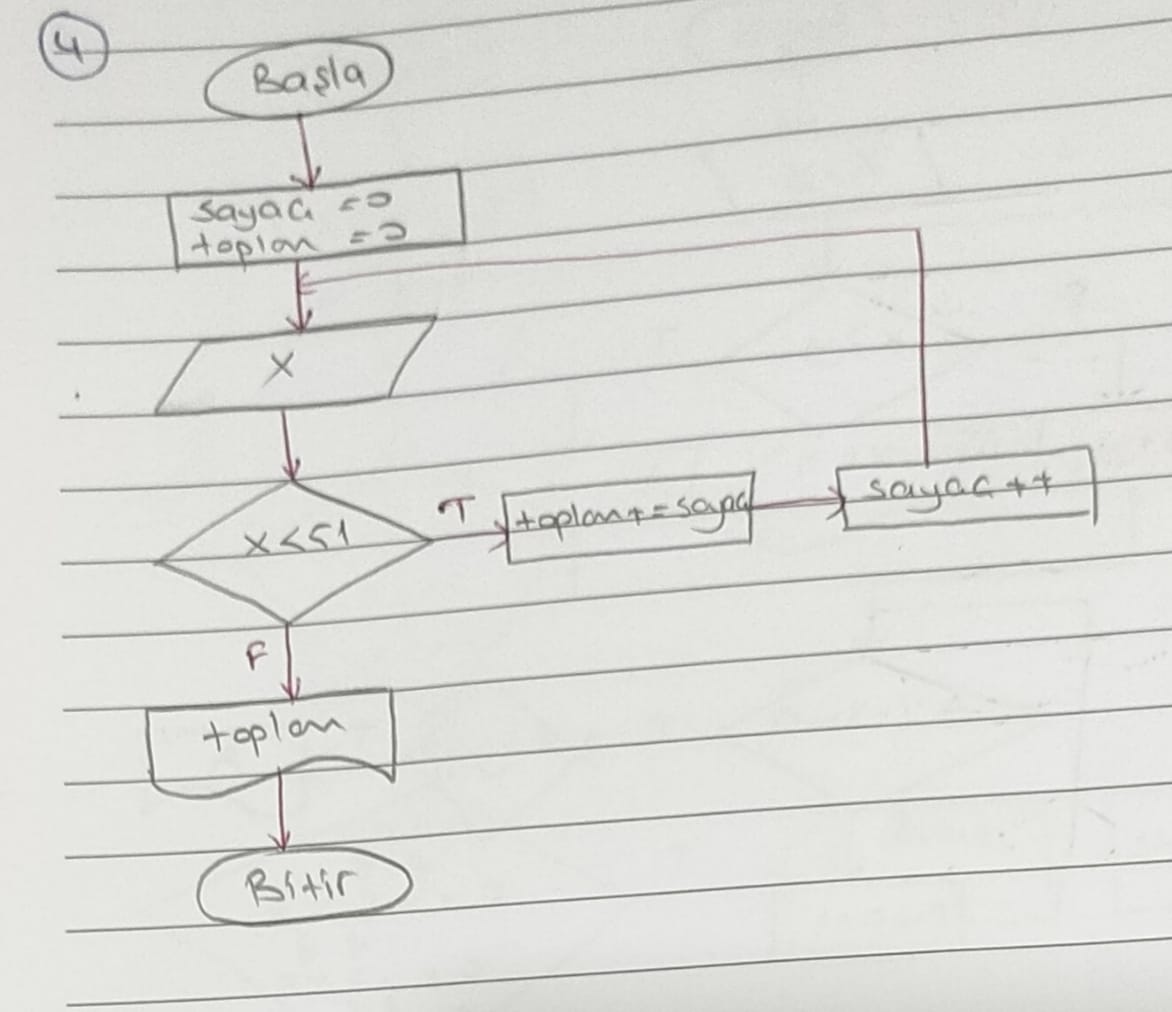 4
Başla
sayac =0
toplam =0
X
X<51
T
toplam+=sayac
sayac++
F
toplam
Bitir